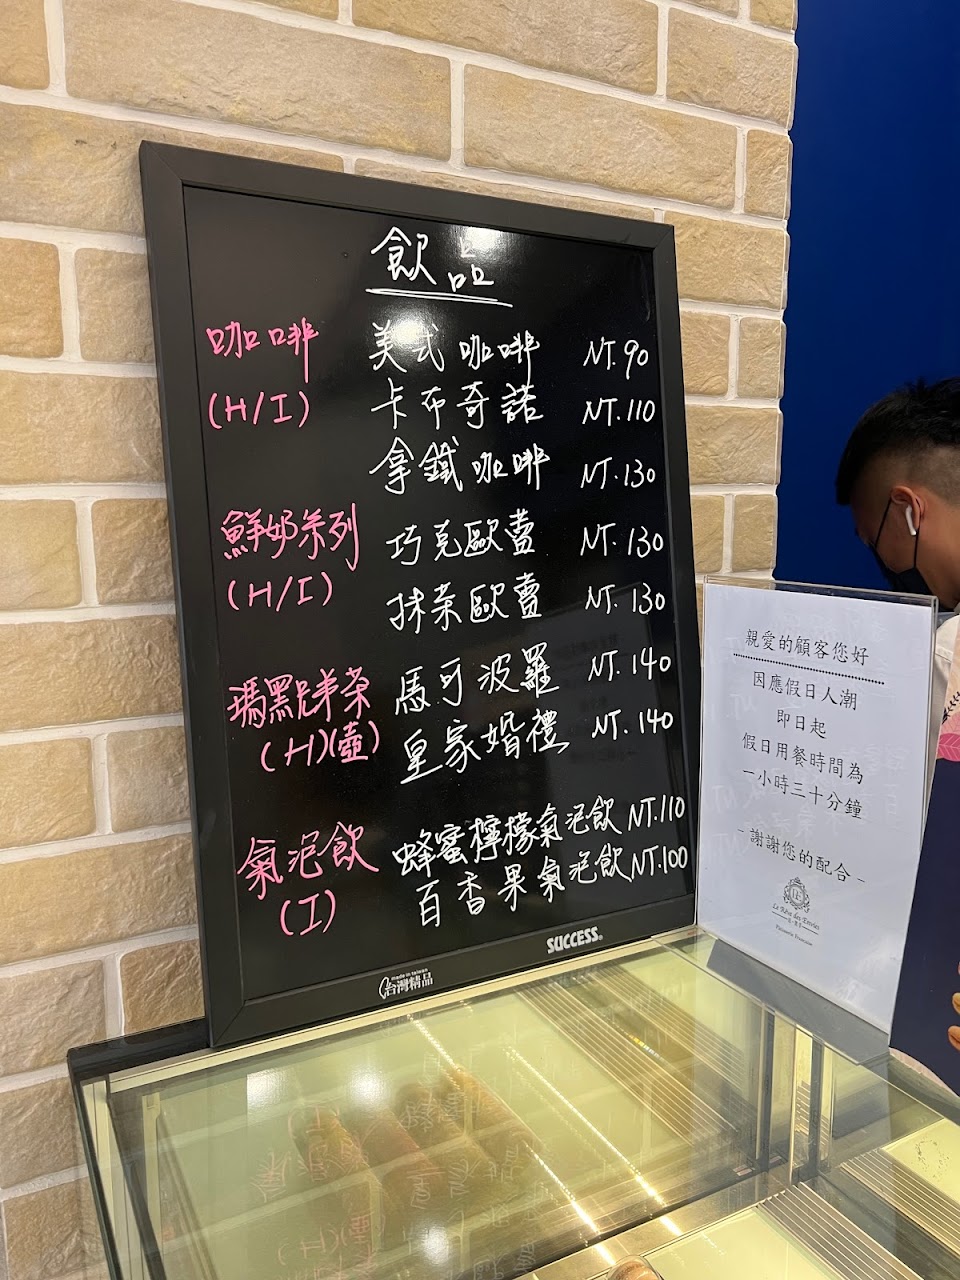 飲品
咖啡 美式咖啡 NT.90
(H/I) 卡布奇諾 NT.110
拿鐵咖啡 NT.130
鮮奶系列 巧克歐蕾 NT.130
(H/I) 抹茶歐蕾 NT.130
瑪黑兄弟茶 馬可波羅 NT.140
(H)(壺) 皇家婚禮 NT.140
氣泡飲 蜂蜜檸檬氣泡飲 NT.110
(I) 百香果氣泡飲 NT.100
SUCCESS®
made in taiwan
台灣精品
親愛的顧客您好
因應假日人潮
即日起
假日用餐時間為
一小時三十分鐘
-謝謝您的配合-
Patisserie Francaise